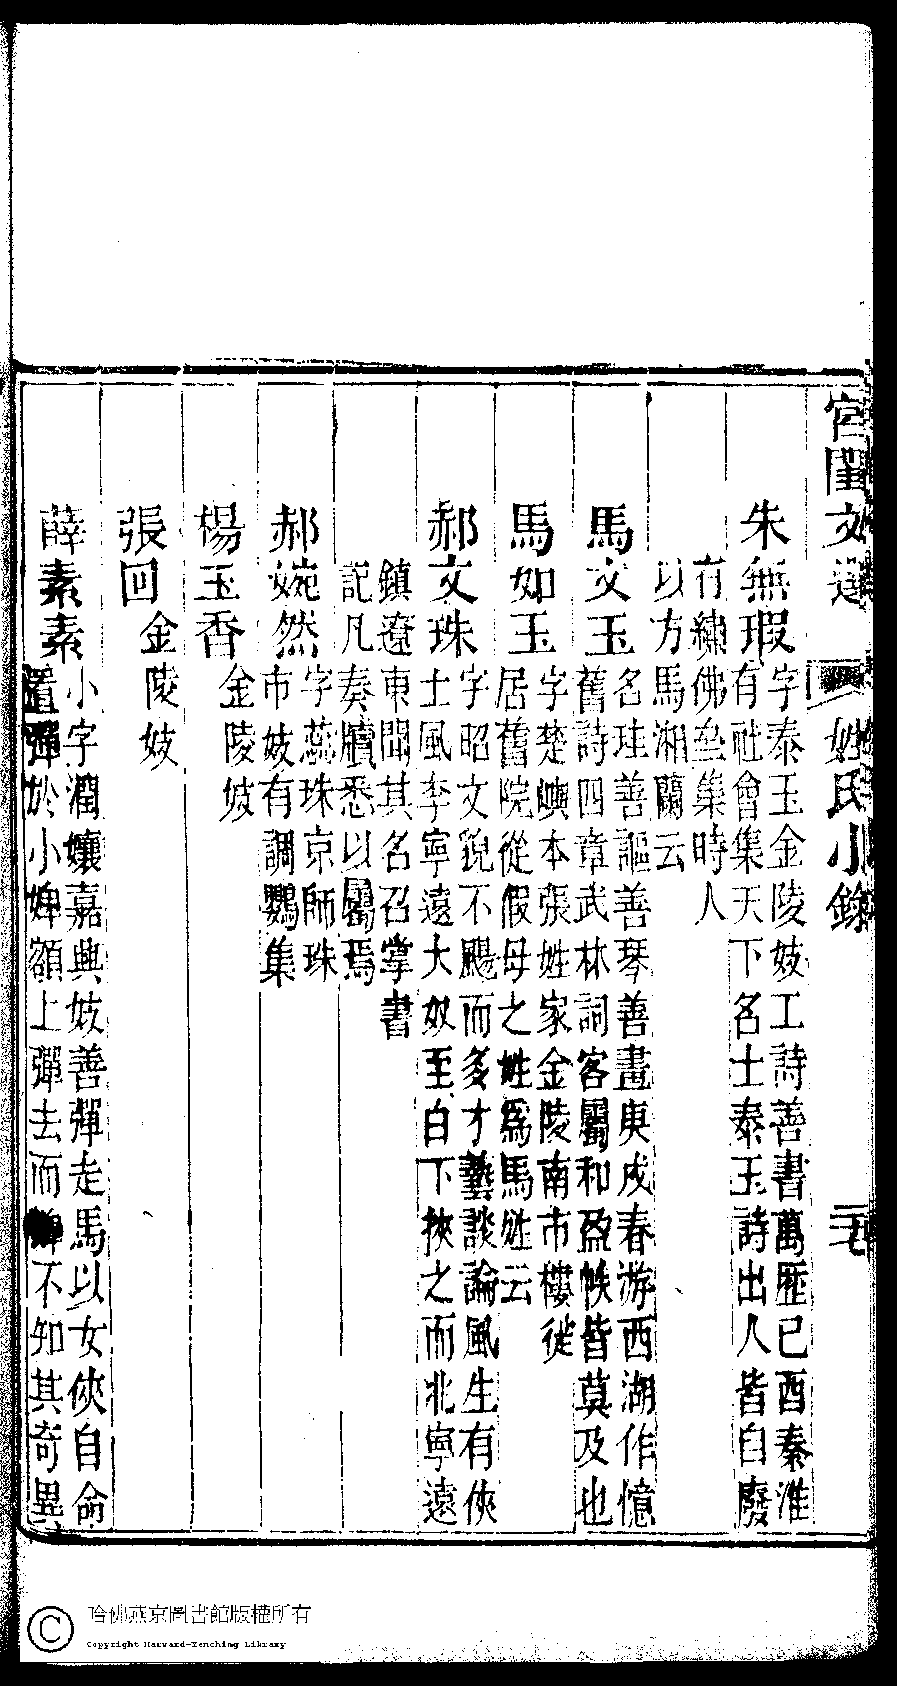 宮閨文選 姓氏小錄
朱無瑕 字泰玉金陵妓工詩善書萬歷已酉秦淮
有社會集天下名士泰玉詩出人皆自廢
有繡佛亝集時人
以方馬湘蘭云
馬文玉 名珪善謳善琴善畫庚戌春游西湖作憶
舊詩四章武林詞客屬和盈帙皆莫及也
馬如玉 字楚嶼本張姓家金陵南市樓徙
居舊院從假母之姓爲馬姓云
郝文珠 字昭文貌不颺而多才藝談論風生有俠
士風李寧遠大奴至白下挾之而北寧遠
鎮遼東聞其名召掌書
記凡奏牘悉以屬焉
郝婉然 字蕊珠京師珠
市妓有調鸚集
楊玉香 金陵妓
張回 金陵妓
薛素素 小字潤孃嘉興妓善彈走馬以女俠自命
置彈於小婢額上彈去而婢不知其奇異
哈佛燕京圖書館版權所有
Copyright Harvard-Yenching Library